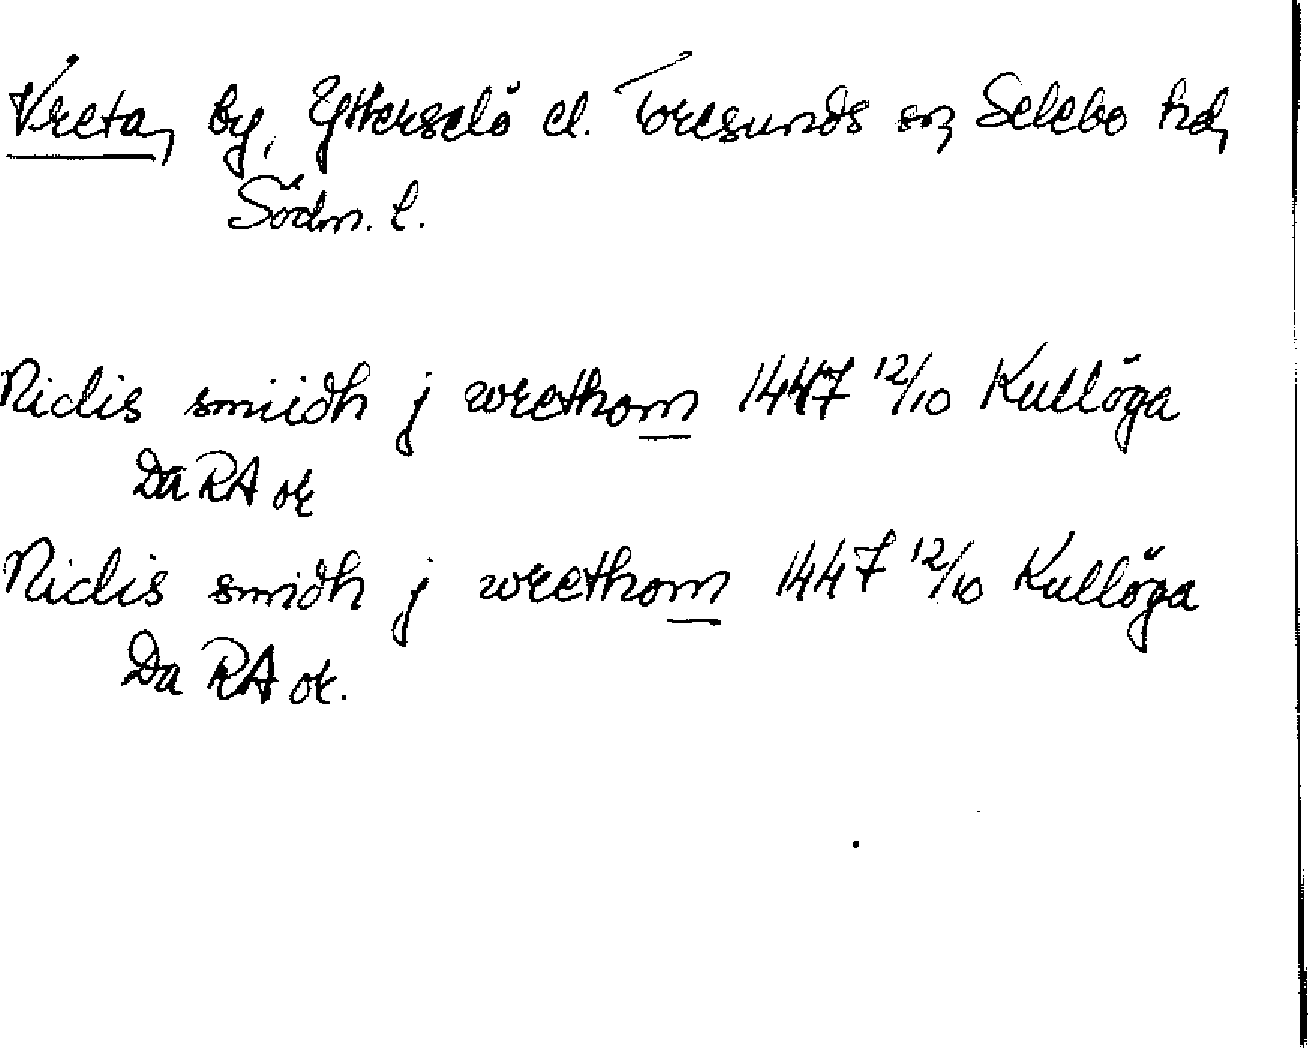 Vreta, by, Ytterselö el. Toresunds sn, Selebo hd,
Södm. l.
Niclis smiidh j wrethom 1447 12/10 Kullöga
Da RA ok
Niclis smidh j wrethom 1447 12/10 Kullöga
Da RA ok.